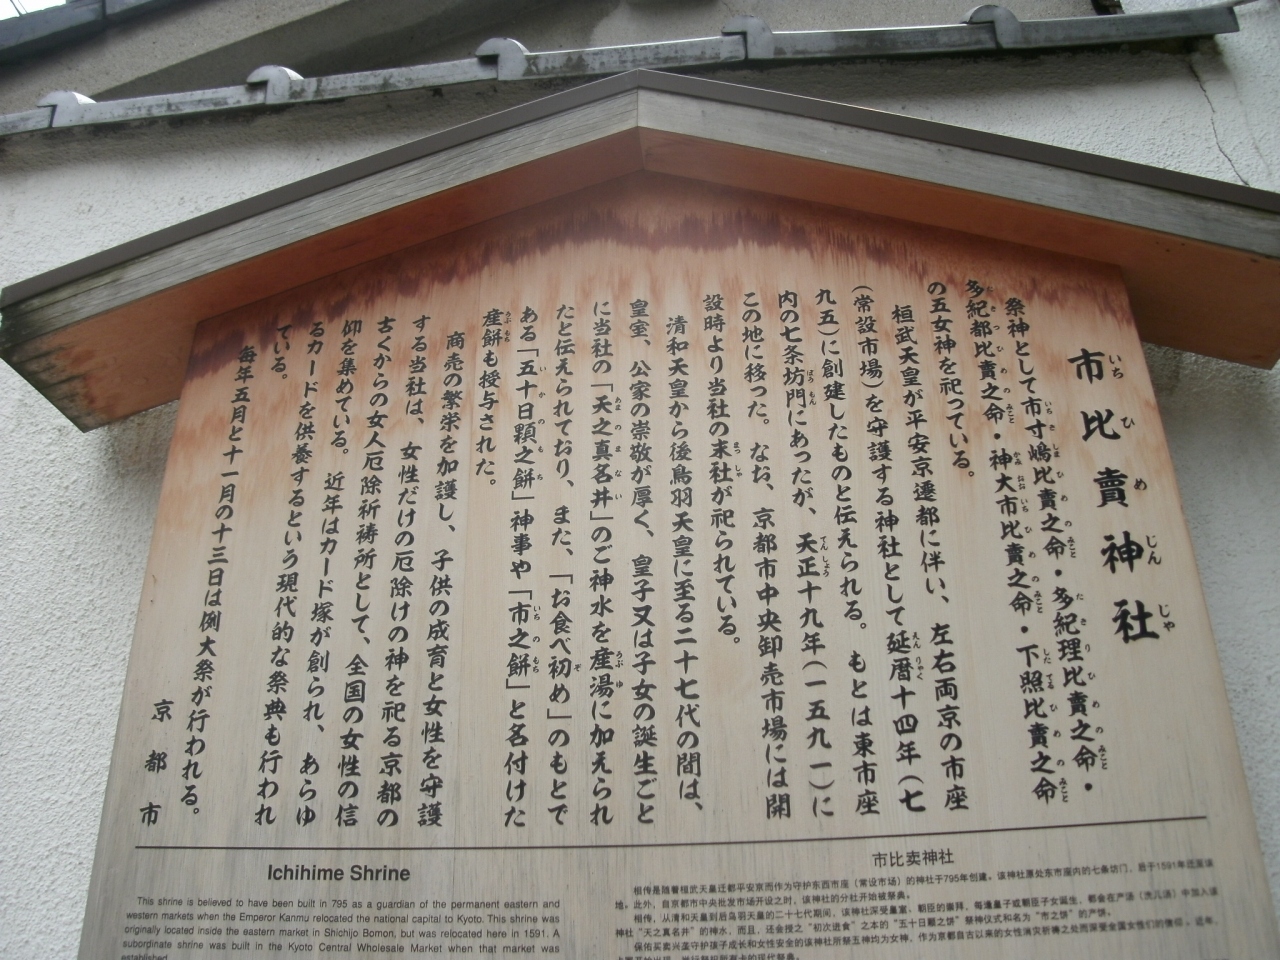 市比賣神社
祭神として市寸嶋比賣之命・多紀理比賣之命・
多紀都比賣之命・神大市比賣之命・下照比賣之命
の五女神を祀つている。
桓武天皇が平安京遷都に伴い、左右両京の市座
(常設市場)を守護する神社として延暦十四年(七
九五)に創建したものと伝えられる。もとは東市座
内の七条坊門にあったが、天正十九年(一五九一)に
この地に移った。なお、京都市中央卸売市場には開
設時より当社の末社が祀られている。
清和天皇から後鳥羽天皇に至る二十七代の間は、
皇室、公家の崇敬が厚く、皇子又は子女の誕生ごと
に当社の「天之真名井」のご神水を産湯に加えられ
たと伝えられており、また、「お食べ初め」のもとで
ある「五十日顆之餅」神事や「市之餅」と名付けた
産餅も授与された。
商売の繁栄を加護し、子供の成育と女性を守護
する当社は、女性だけの厄除けの神を祀る京都の
古くからの女人厄除祈祷所として、全国の女性の信
仰を集めている。近年はカード塚が創られ、あらゆ
るカードを供養するという現代的な祭典も行われ
ている。
毎年五月と十一月の十三日は例大祭が行われる。
京都市
Ichihime Shrine
This shrine is believed to have been built in 795 as a guardian of the permanent eastern and
western markets when the Emperor Kanmu relocated the national capital to Kyoto. This shrine was
originally located inside the eastern market in Shichijo Bomon, but was relocated here in 1591. A
subordinate shrine was built in the Kyoto Central Wholesale Market when that market was
established.
市比卖神社
相传是随着桓武天皇迁都平安京而作为守护东西市座(常设市场)的神社于795年创建。该神社原处东市座内的七条坊门,后于1591年迁至该
地。此外、自京都市中央批发市场开设之时、该神社的分社开始被祭典。
相传、从清和天皇到后鸟羽天皇的二十七代期间、该神社深受皇室、朝臣的崇拜、每逢皇子或朝臣子女诞生、都会在产汤(洗儿汤)中加入该
神社"天之真名井"的神水、而且、还会授之"初次进食"之本的"五十日颗之饼"祭神仪式和名为"市之饼"的产饼。
保佑买卖兴盛守护孩子成长和女性安全的该神社所祭五神均为女神、作为京都自古以来的女性消灾祈祷之处而深受全国女性们的信仰。近年、